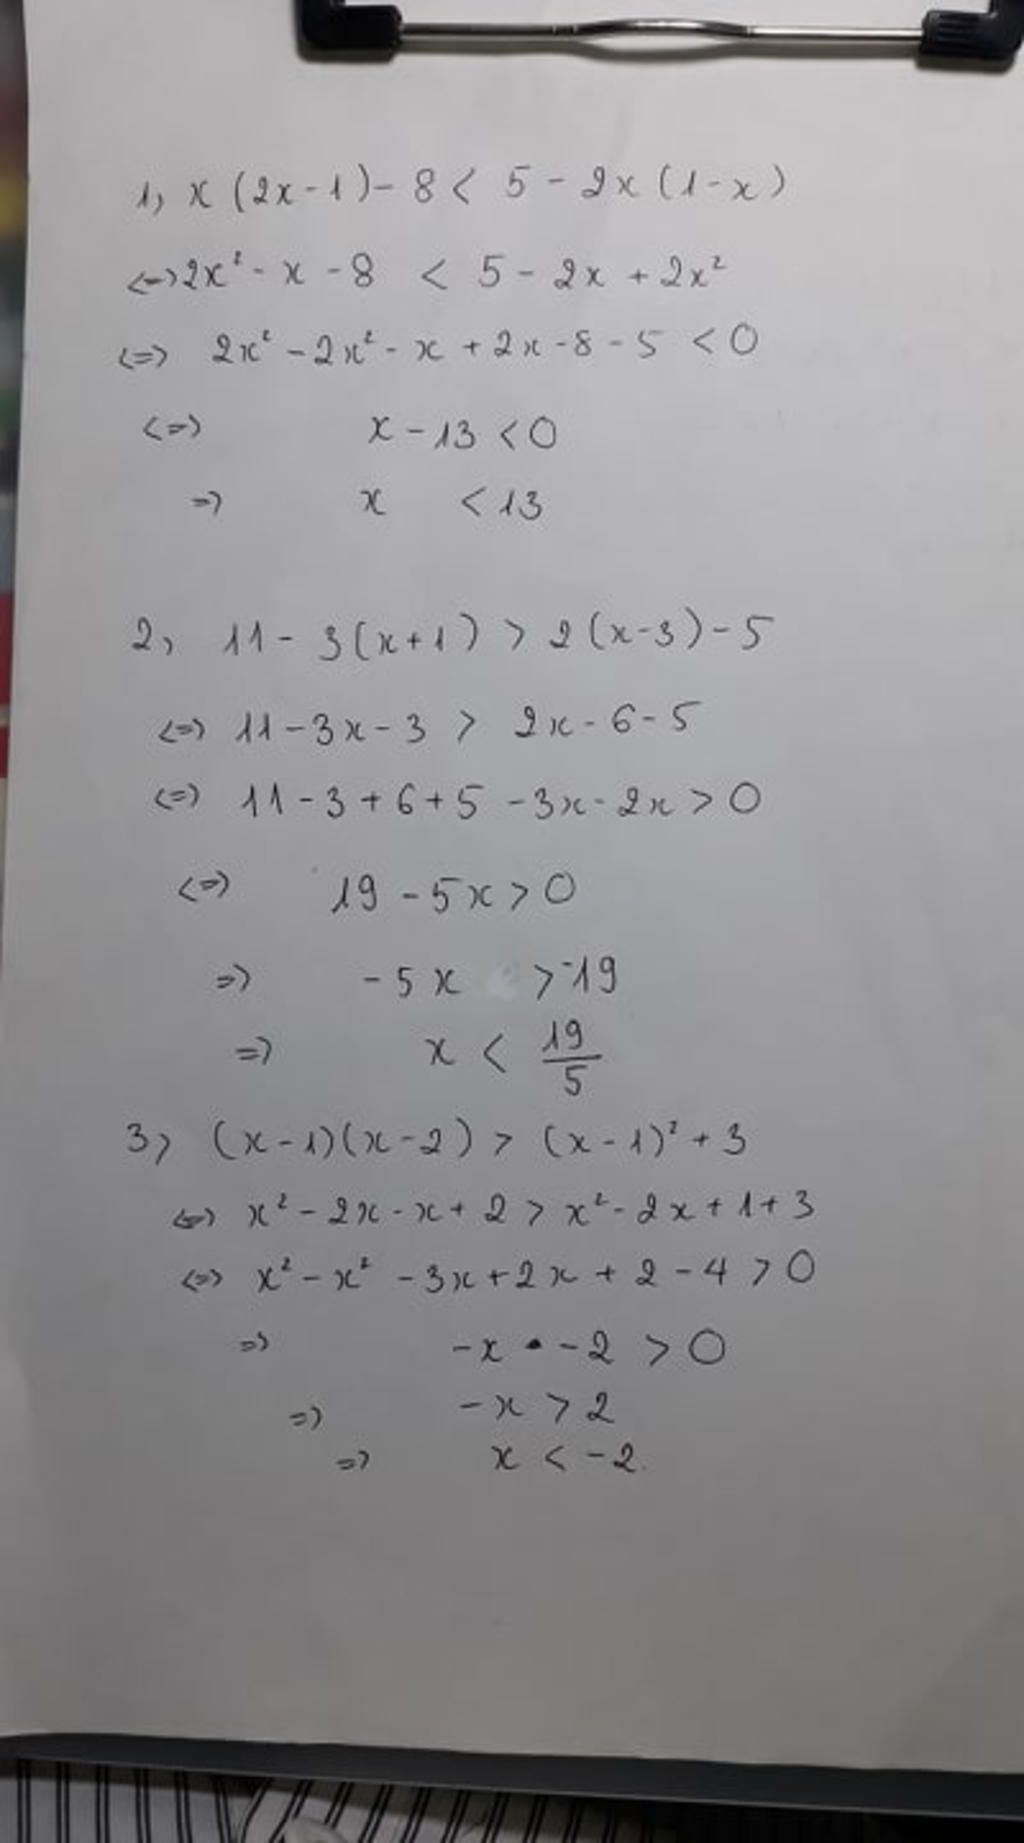 1, x (2x - 1) - 8 < 5 - 2x (1 - x)
<=> 2x² - x - 8 < 5 - 2x + 2x²
<=> 2x² - 2x² - x + 2x - 8 - 5 < 0
<=> x - 13 < 0
=> x < 13
2, 11 - 3(x + 1) > 2(x - 3) - 5
<=> 11 - 3x - 3 > 2x - 6 - 5
<=> 11 - 3 + 6 + 5 - 3x - 2x > 0
<=> 19 - 5x > 0
=> - 5x > -19
=> x < 19/5
3, (x - 1)(x - 2) > (x - 1)² + 3
<=> x² - 2x - x + 2 > x² - 2x + 1 + 3
<=> x² - x² - 3x + 2x + 2 - 4 > 0
=> -x - 2 > 0
=> -x > 2
=> x < -2.